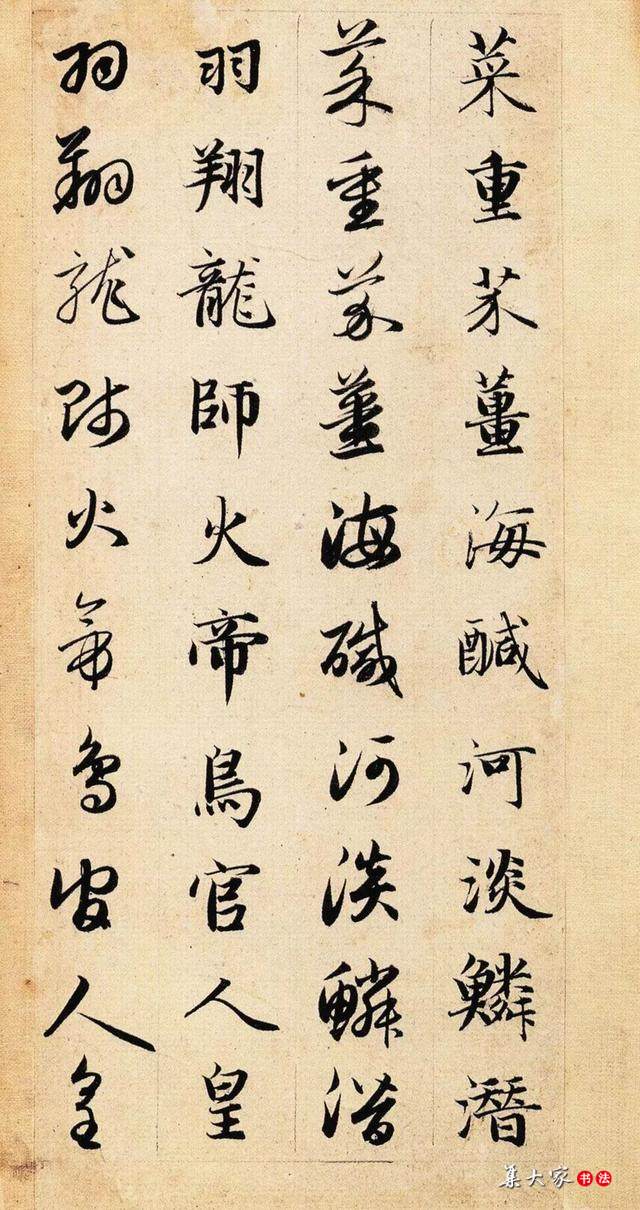 菜重芥薑海醎河淡鱗潛
菜重芥薑海醎河淡鱗潛
羽翔龍師火帝鳥官人皇
羽翔龍師火帝鳥官人皇
集大家书法